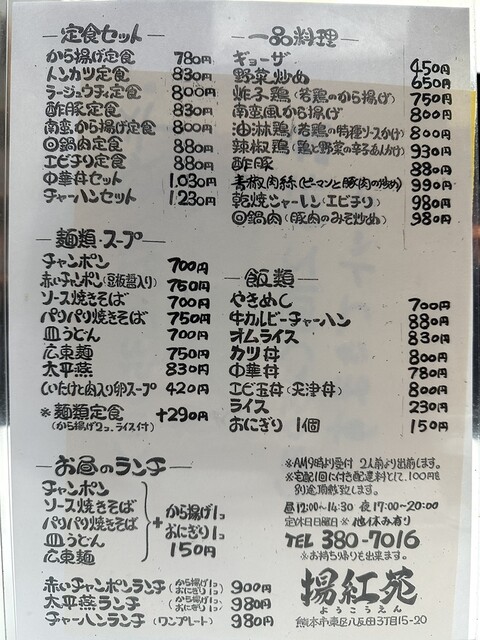 定食セット
から揚げ定食 780円
トンカツ定食 830円
ラージュウチィ定食 800円
酢豚定食 830円
南蛮から揚げ定食 800円
回鍋肉定食 880円
エビチリ定食 880円
中華丼セット 1,030円
チャーハンセット 1,230円
一品料理
ギョーザ 450円
野菜炒め 650円
炸子鶏(若鶏のから揚げ) 750円
南蛮風から揚げ 800円
油淋鶏(若鶏の特種ソースかけ) 800円
辣椒鶏(鶏と野菜の辛子あんかけ) 930円
酢豚 880円
青椒肉絲(ピーマンと豚肉の炒め) 990円
乾焼シャーレン(エビチリ) 980円
回鍋肉(豚肉のみそ炒め) 980円
麺類・スープ
チャンポン 700円
赤いチャンポン(豆板醤入り) 750円
ソース焼きそば 700円
パリパリ焼きそば 750円
皿うどん 700円
広東麺 750円
太平燕 830円
しいたけと肉入り卵スープ 420円
※麺類定食 +290円
(から揚げ2コ、ライス付)
飯類
やきめし 700円
牛カルビーチャーハン 880円
オムライス 830円
カツ丼 800円
中華丼 780円
エビ玉丼(天津丼) 800円
ライス 230円
おにぎり 1個 150円
お昼のランチ
チャンポン
ソース焼きそば
パリパリ焼きそば
皿うどん
広東麺
+ から揚げ1コ
おにぎり1コ
150円
赤いチャンポンランチ(から揚げ1コ おにぎり1コ) 900円
太平燕ランチ(から揚げ1コ おにぎり1コ) 980円
チャーハンランチ(ワンプレート) 980円
※AM9時より受付 2人前より出前します。
※宅配1回に付き配達料として、100円を
別途頂戴致します。
昼12:00~14:30 夜17:00~20:00
定休日日曜日 ※他休み有り
TEL 380-7016
※お持ち帰りも出来ます。
揚紅苑
ようこうえん
熊本市東区八反田3丁目15-20